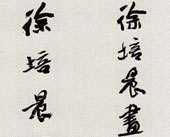 徐培晨畫
徐培晨